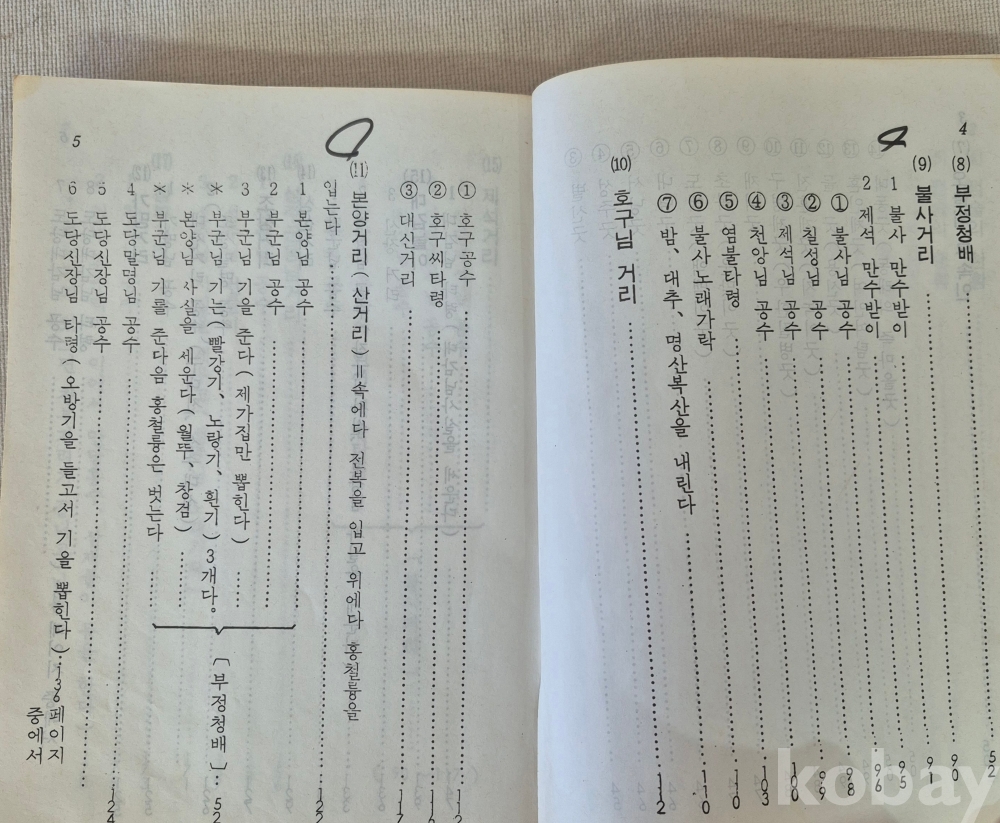 4
(8) 부정청배 52
(9) 불사거리 90
1 불사 만수받이 91
2 제석 만수받이 95
① 불사님 공수 96
② 칠성님 공수 98
③ 제석님 공수 99
④ 천앙님 공수 100
⑤ 염불타령 103
⑥ 불사노래가락 110
⑦ 밤、대추、명산복산을 내린다 110
(10) 호구님 거리 112
5
① 호구공수 112
② 호구씨타령 116
③ 대신거리 117
(11) 본양거리(산거리)=속에다 전복을 입고 위에다 홍철륭을
입는다 122
1 본양님 공수
2 부군님 공수
3 부군님 기을 준다(제가집만 뽑힌다)
* 부군님 기는(빨강기、노랑기、흰기)3개다。
* 본양님 사실을 세운다(월뚜、창검)
* 부군님 기를 준다음 홍철륭은 벗는다
[부정청배]: 52
4 도당말명님 공수 124
5 도당신장님 공수
6 도당신장님 타령(오방기을 들고서 기을 뽑힌다)·136페이지
중에서
kobay